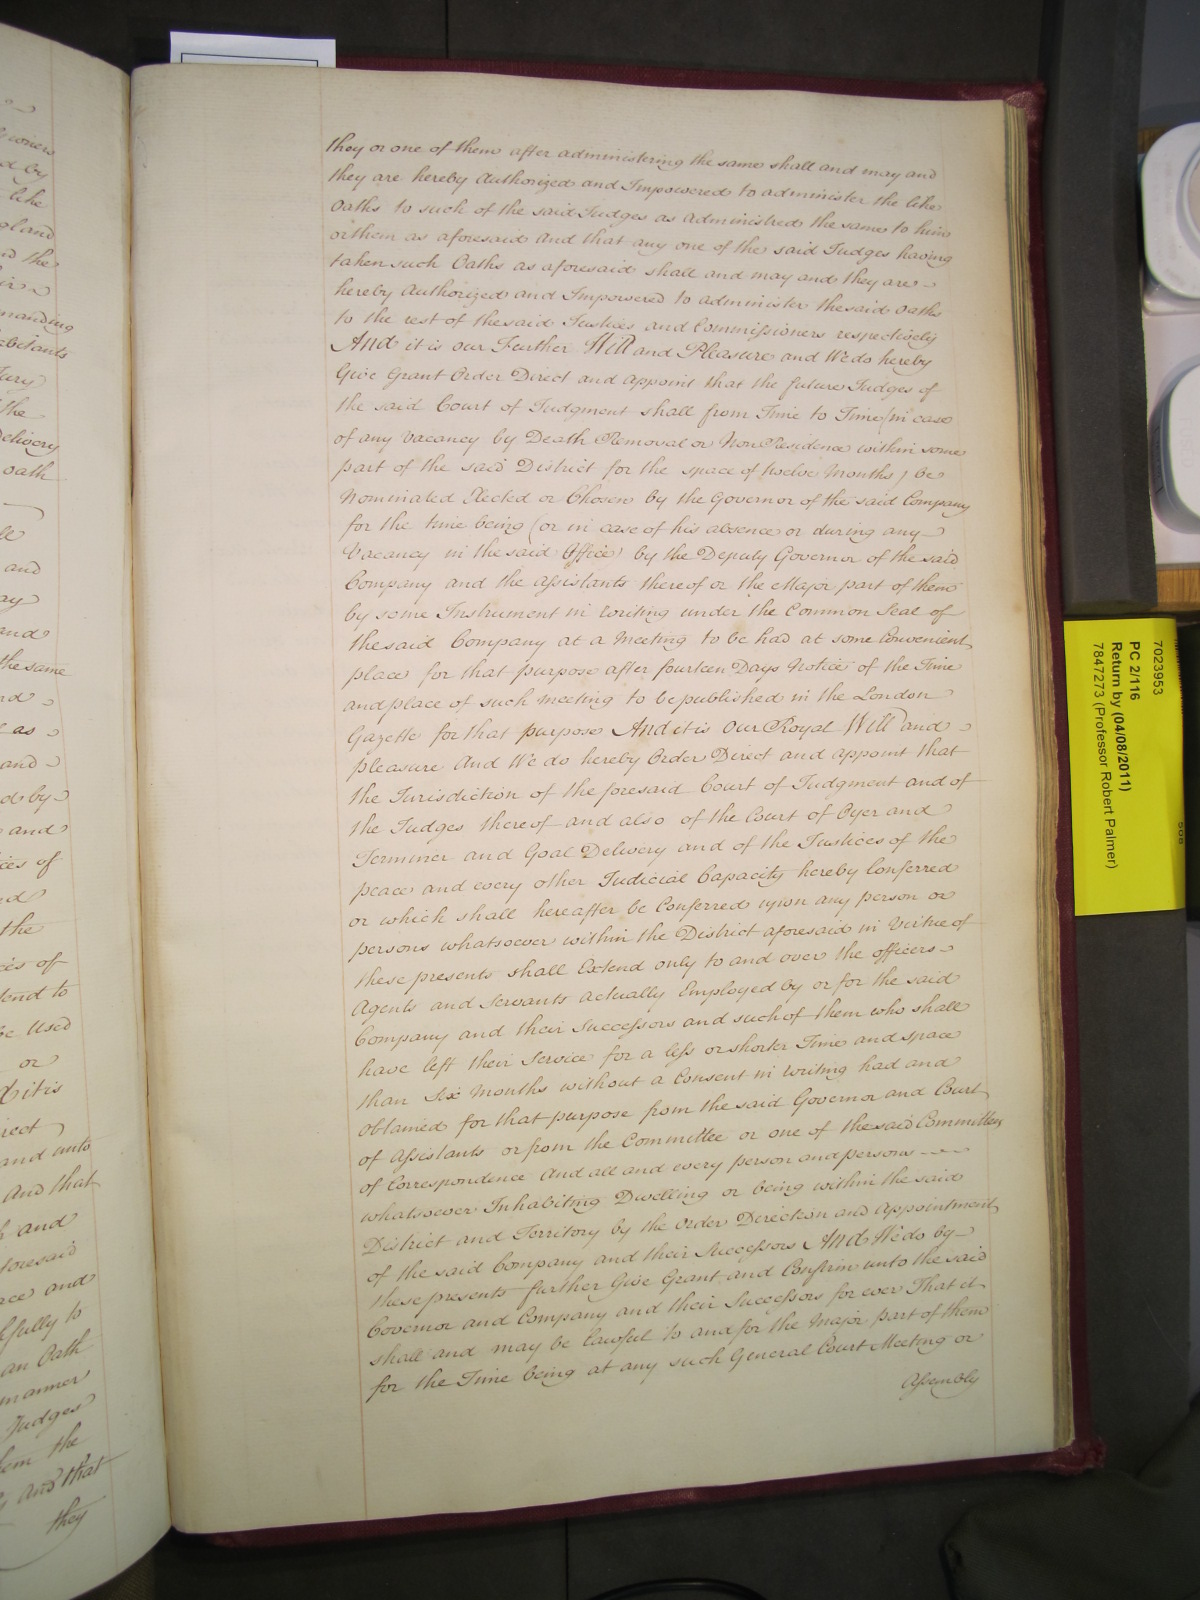 they or one of them after administering the same shall and may and
they are hereby Authorized and Impowered to administer the like
Oaths to such of the said Judges as Administred the same to him
or them as aforesaid And that any one of the said Judges having
taken such Oaths as aforesaid shall and may and they are
hereby Authorized and Impowered to administer the said Oaths
to the rest of the said Justices and Commissioners respectively
And it is our Further Will and Pleasure and We do hereby
Give Grant Order Direct and appoint that the future Judges of
the said Court of Judgment shall from Time to Time (in case
of any Vacancy by Death Removal or Non Residence within some
part of the said District for the space of twelve Months) be
Nominated Elected or Chosen by the Governor of the said Company
for the time being (or in case of his absence or during any
Vacancy in the said Office) by the Deputy Governor of the said
Company and the Assistants thereof or the Major part of them
by some Instrument in Writing under the Common Seal of
the said Company at a Meeting to be had at some Convenient
place for that purpose after fourteen Days Notice of the Time
and place of such meeting to be published in the London
Gazette for that purpose And it is Our Royal Will and
pleasure And We do hereby Order Direct and appoint that
the Jurisdiction of the foresaid Court of Judgment and of
the Judges thereof and also of the Court of Oyer and
Terminer and Goal Delivery and of the Justices of the
peace and every other Judicial Capacity hereby Conferred
or which shall hereafter be Conferred upon any person or
persons whatsoever within the District aforesaid in Virtue of
these presents shall Extend only to and over the officers
Agents and Servants actually Employed by or for the said
Company and their Successors and such of them who shall
have left their Service for a less or shorter Time and space
than Six Months without a Consent in writing had and
obtained for that purpose from the said Governor and Court
of Assistants or from the Committee or one of the said Committees
of Correspondence And all and every person and persons
whatsoever Inhabiting Dwelling or being within the said
District and Territory by the Order Direction and Appointment
of the said Company and their Successors And We do by
these presents further Give Grant and Confirm unto the said
Governor and Company and their Successors for ever That it
shall and may be Lawful to and for the Major part of them
for the Time being at any such General Court Meeting or
Assembly
d by
like
gland
the
manding
abitants
Jury
the
Delivery
oath
and
and
the same
as
and
d by
and
ces of
the
ces of
tend to
be Used
or
it is
rect
and unto
And that
and
foresaid
ace and
fully to
an Oath
manner
Judges
em the
And that
they
7023953
PC 2/116
Return by (04/08/2011)
7847273 (Professor Robert Palmer)